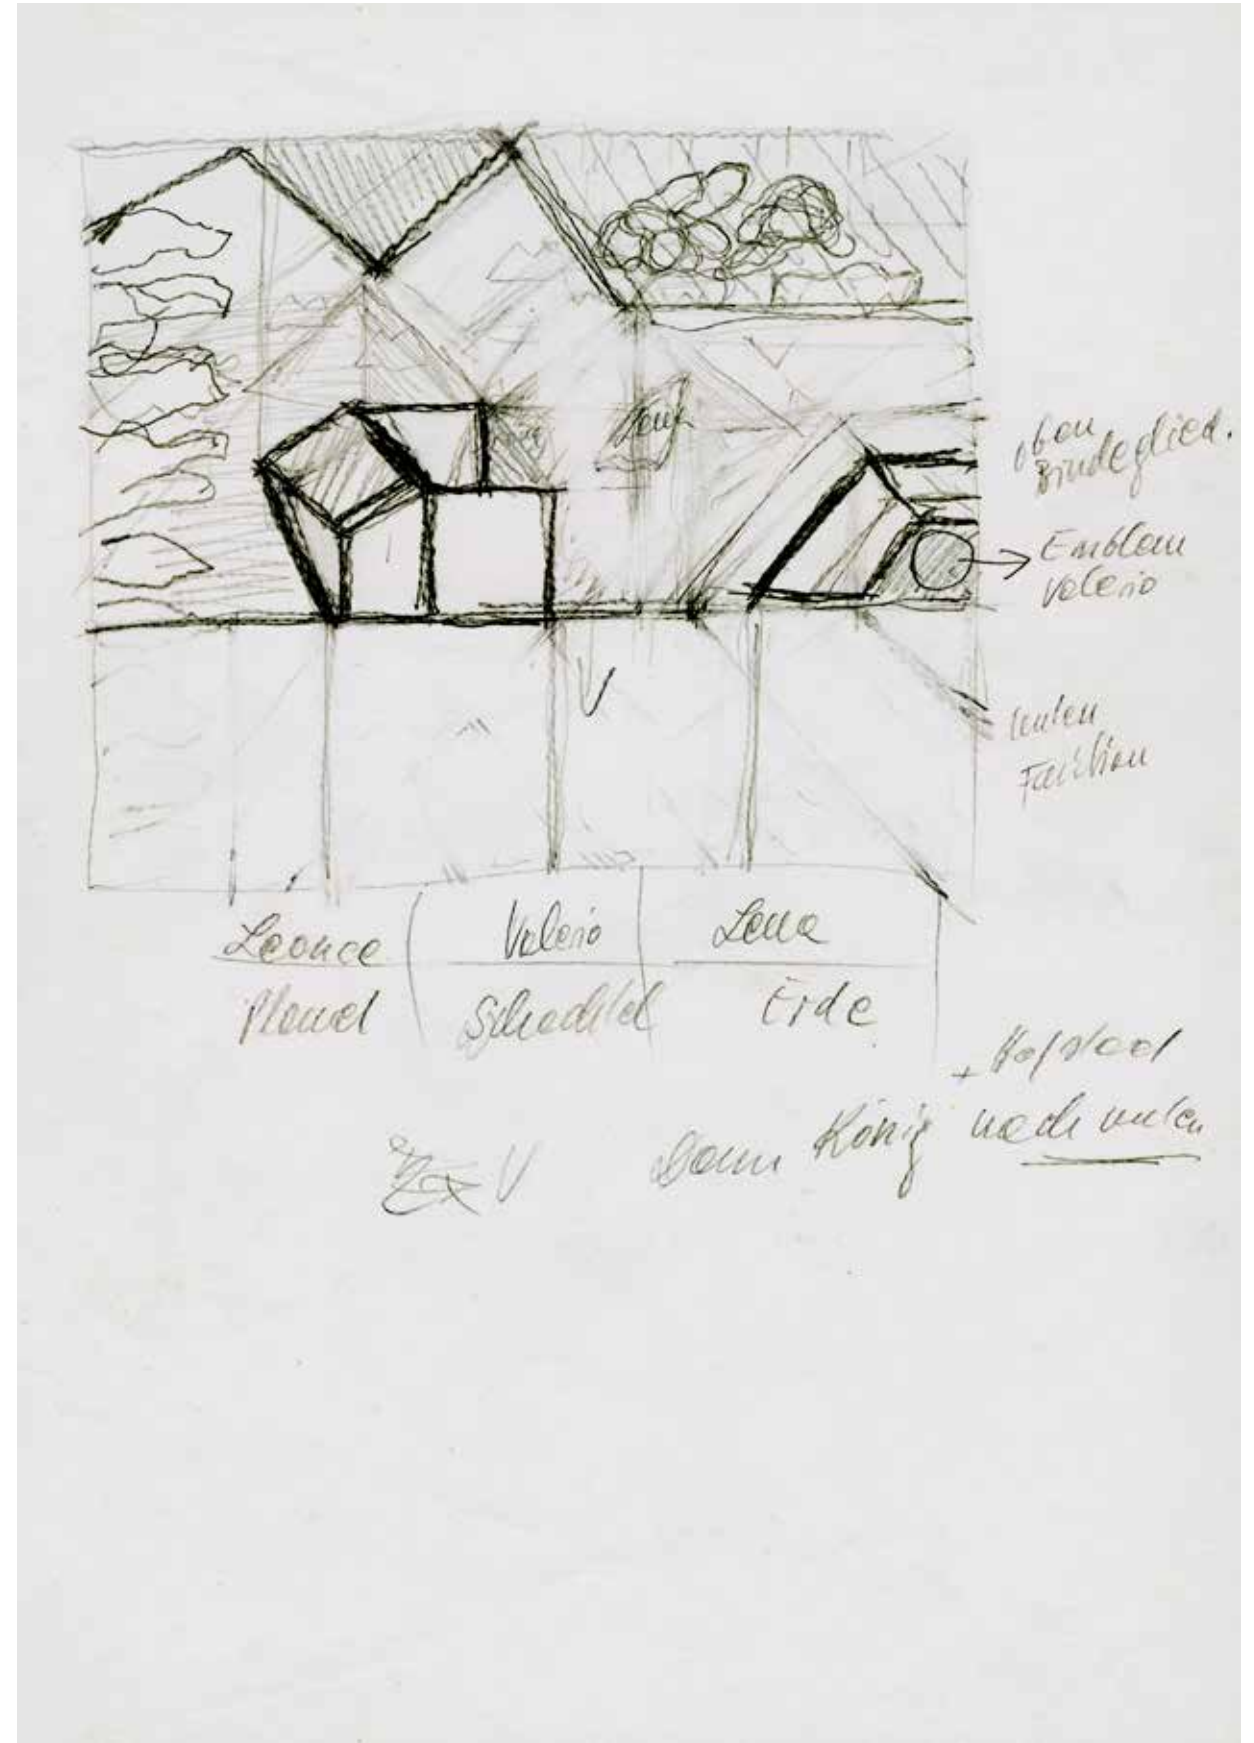 oben
Bindeglied.
Emblem
Valerio
unten
Funktion
Leonce
Valerio
Lena
Planet
Schachtel
Erde
+ Hofstaat
Dann König nach unten
V